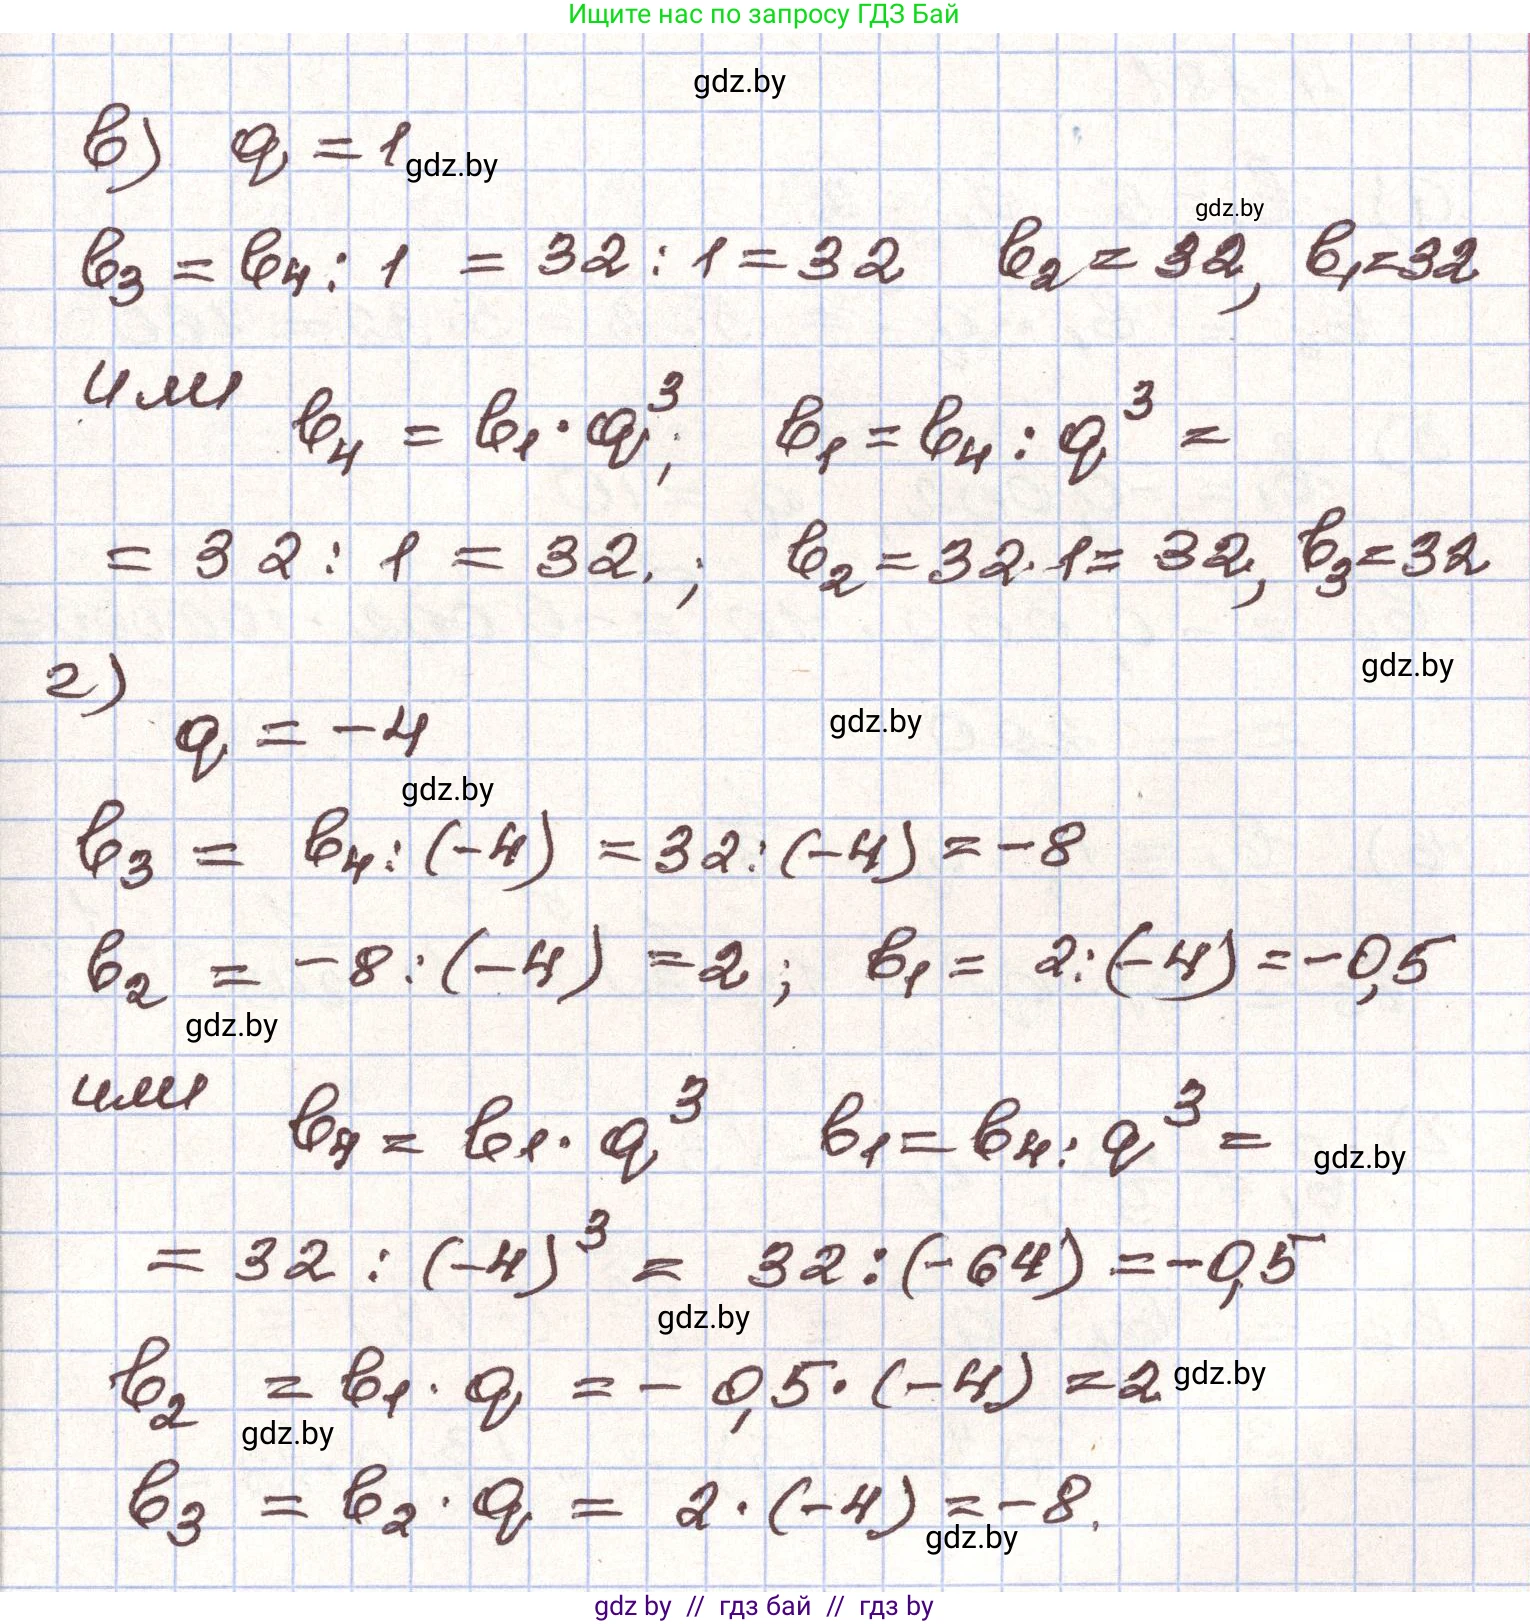 Ищите нас по запросу ГДЗ Бай
gdz.by
в) q = 1 gdz.by
gdz.by
b₃ = b₄ : 1 = 32 : 1 = 32 b₂ = 32, b₁ = 32
или b₄ = b₁ · q³; b₁ = b₄ : q³ =
= 32 : 1 = 32. ; b₂ = 32 · 1 = 32, b₃ = 32
gdz.by
г)
q = -4 gdz.by
gdz.by
b₃ = b₄ : (-4) = 32 : (-4) = -8
b₂ = -8 : (-4) = 2 ; b₁ = 2 : (-4) = -0,5
gdz.by
или b₄ = b₁ · q³ b₁ = b₄ : q³ =
gdz.by
= 32 : (-4)³ = 32 : (-64) = -0,5
gdz.by
b₂ = b₁ · q = -0,5 · (-4) = 2 gdz.by
gdz.by
b₃ = b₂ · q = 2 · (-4) = -8.
gdz.by
gdz by // гдз бай // гдз by